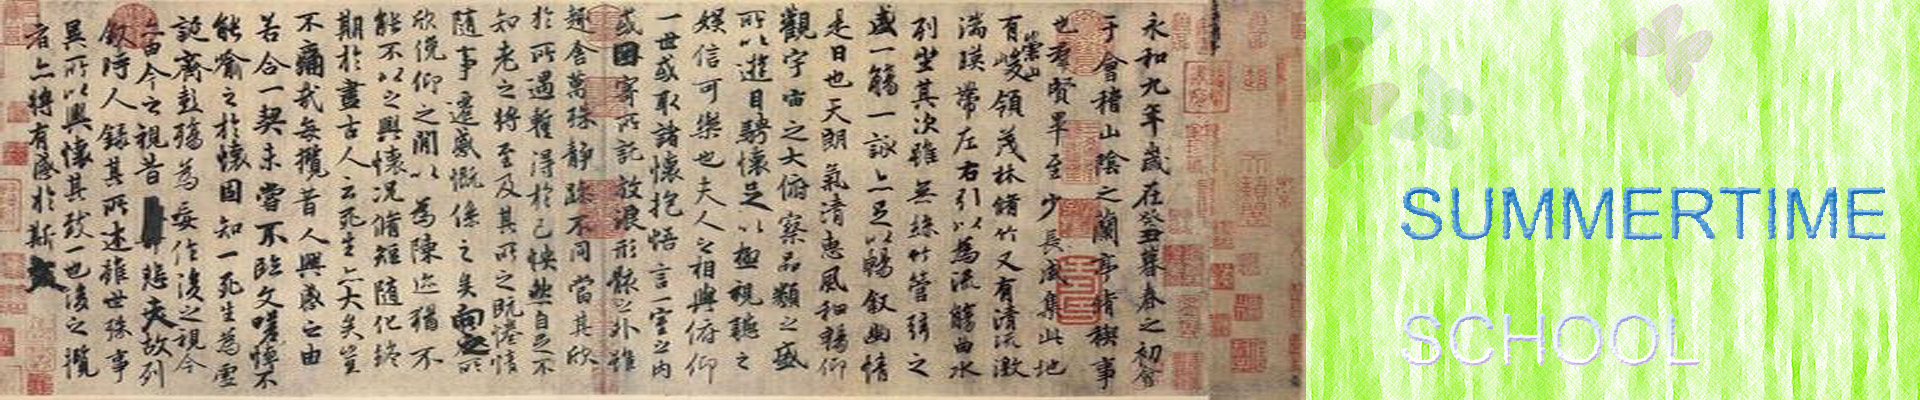 永和九年歲在癸丑暮春之初會
于會稽山陰之蘭亭脩禊事
也羣賢畢至少長咸集此地
有崇山峻領茂林脩竹又有清流激
湍暎帶左右引以為流觴曲水
列坐其次雖無絲竹管弦之
盛一觴一詠亦足以暢敘幽情
是日也天朗氣清惠風和暢仰
觀宇宙之大俯察品類之盛
所以遊目騁懷足以極視聽之
娛信可樂也夫人之相與俯仰
一世或取諸懷抱悟言一室之內
或因寄所託放浪形骸之外雖
趣舍萬殊靜躁不同當其欣
於所遇暫得於己快然自足不
知老之將至及其所之既惓情
隨事遷感慨係之矣向之所
欣俛仰之閒以為陳迹猶不
能不以之興懷況脩短隨化終
期於盡古人云死生亦大矣豈
不痛哉每攬昔人興感之由
若合一契未嘗不臨文嗟悼不
能喻之於懷固知一死生為虛
誕齊彭殤為妄作後之視今
亦由今之視昔悲夫故列
敘時人錄其所述雖世殊事
異所以興懷其致一也後之攬
者亦將有感於斯文
SUMMERTIME
SCHOOL